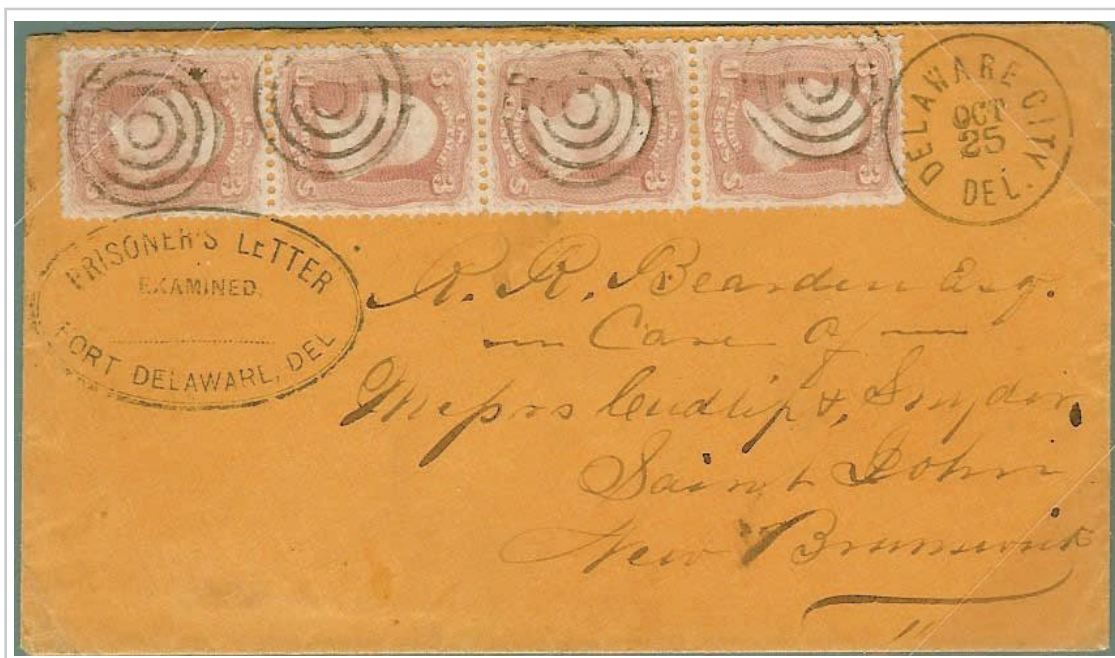 DELAWARE CITY
OCT
25
DEL.
PRISONER'S LETTER
EXAMINED.
FORT DELAWARE, DEL
A. R. Bearden Esq.
Care of
Messrs Cudlip & Snyder
Saint John
New Brunswick